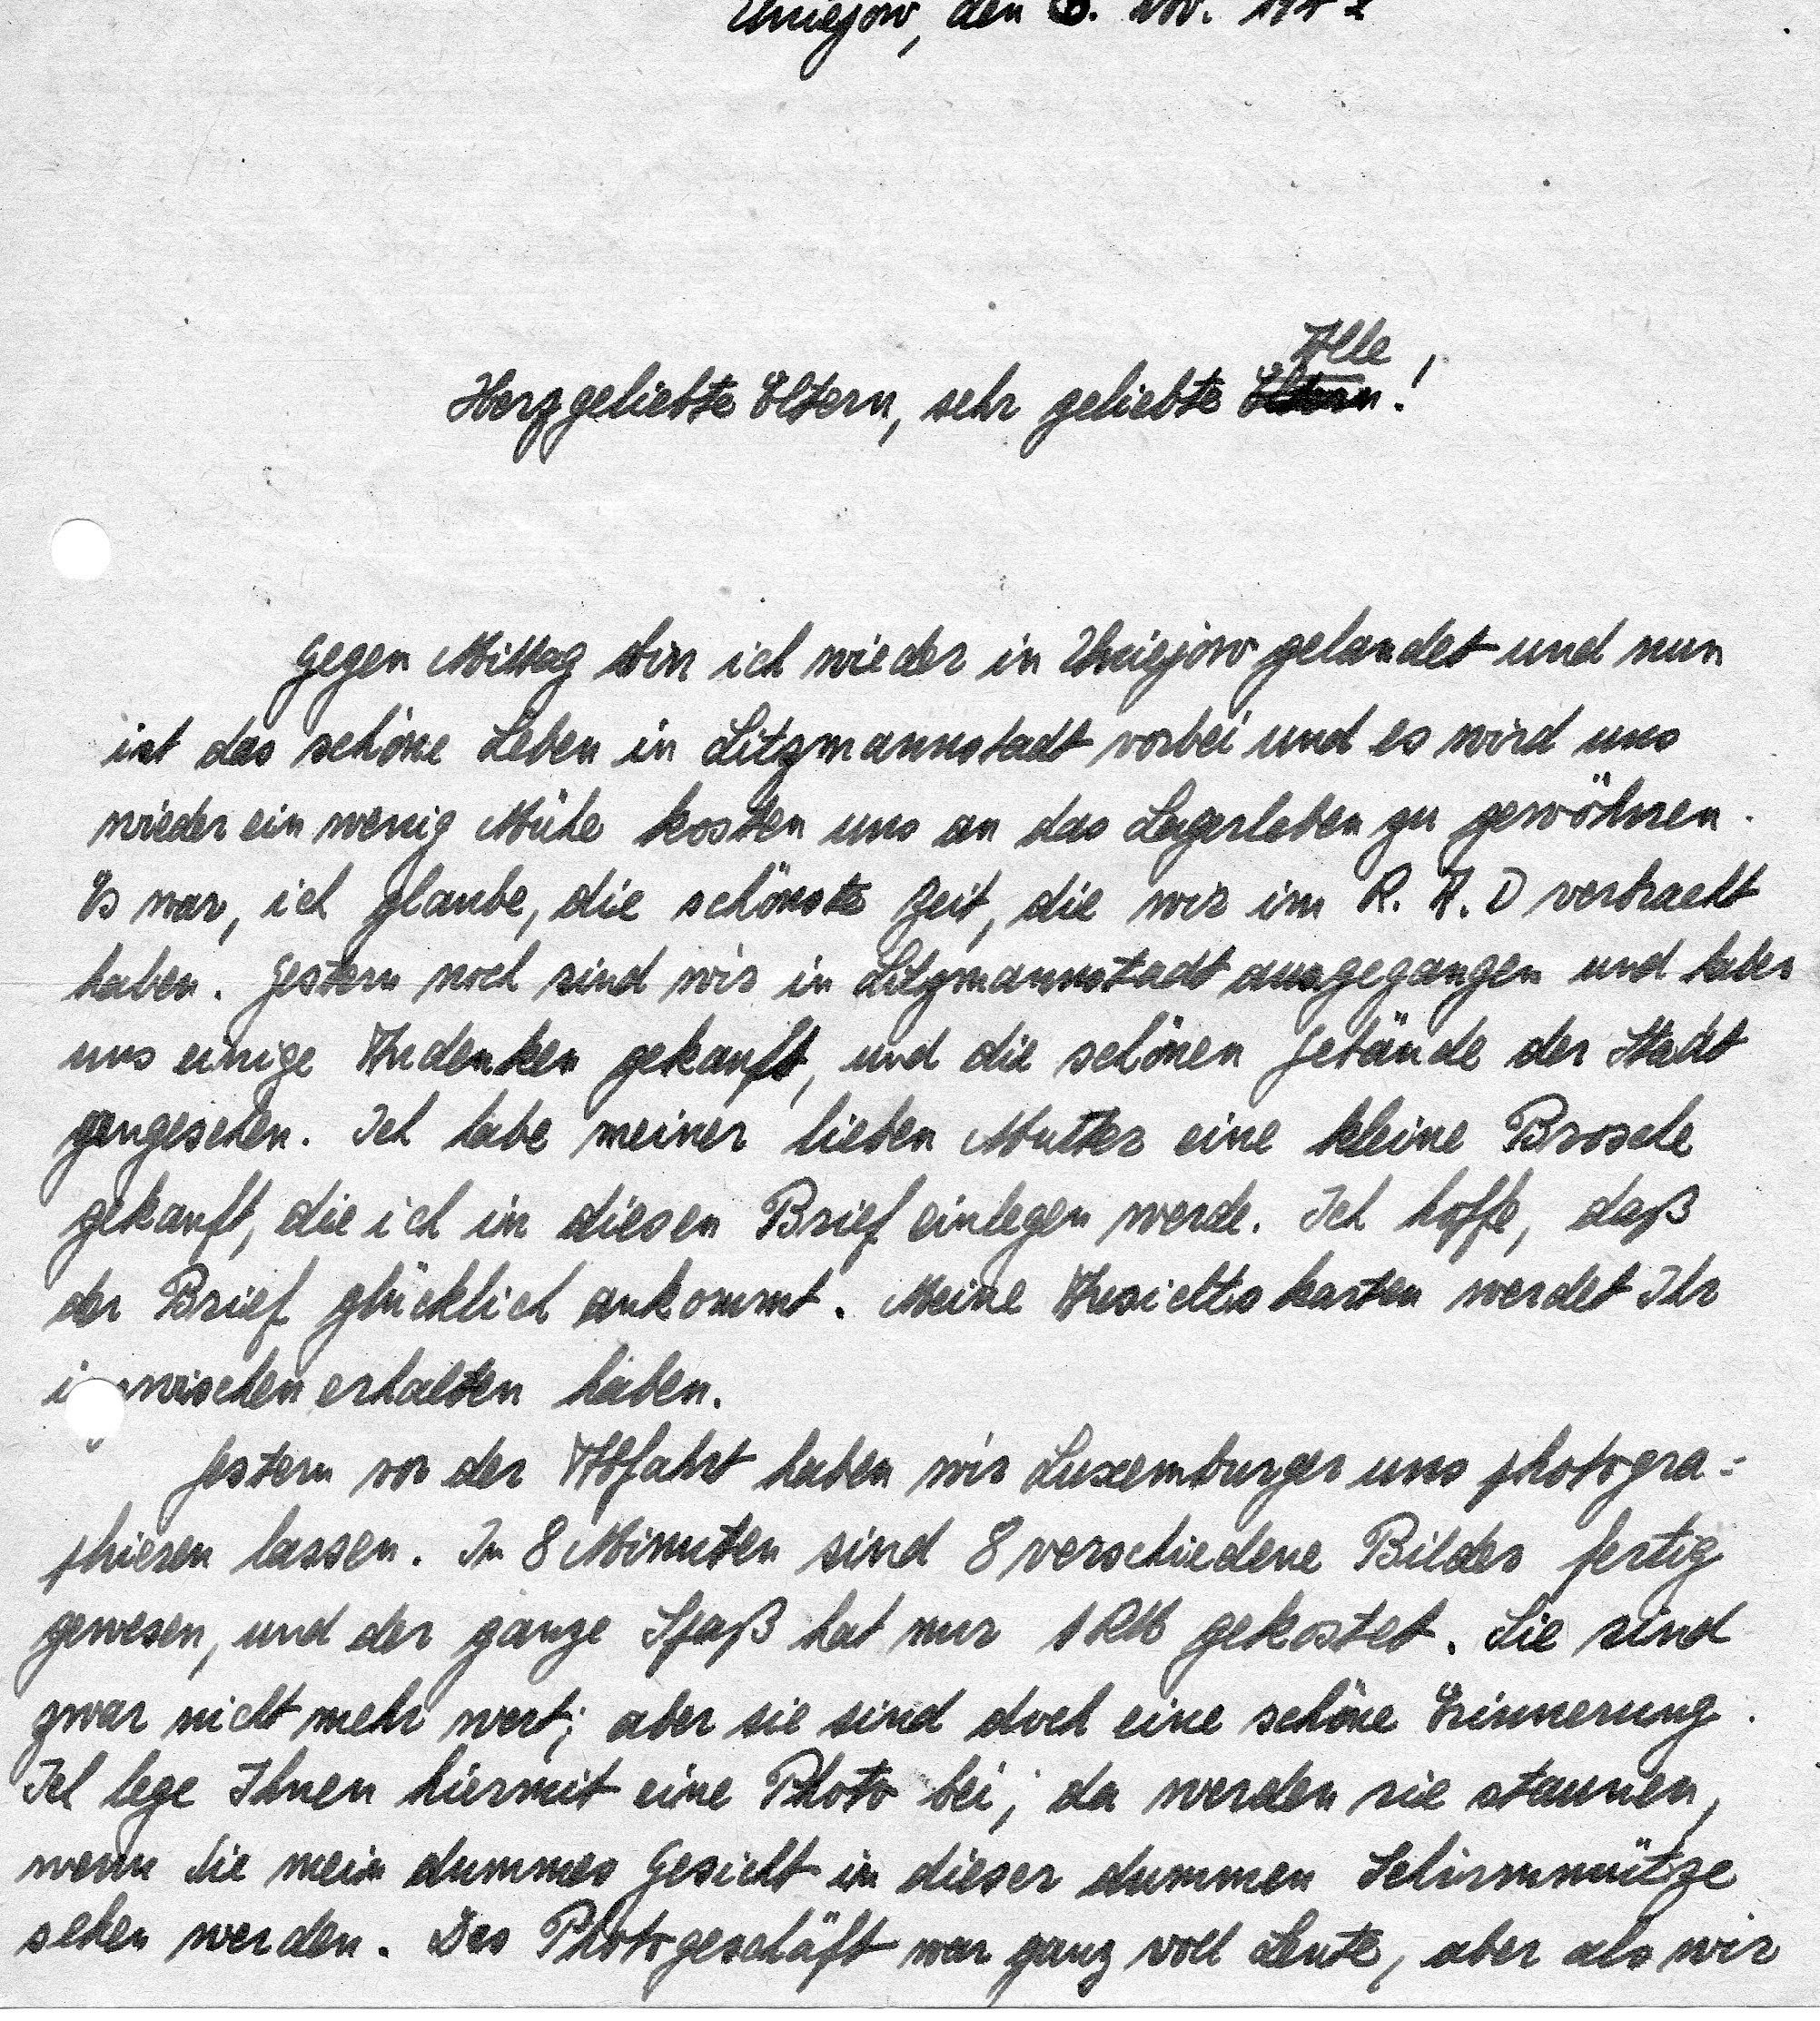 Uniejow, den 8. Nov. 1942
Alle
Herzgeliebte Eltern, sehr geliebte Eltern!
Gegen Mittag bin ich wieder in Uniejow gelandet und nun
ist das schöne Leben in Litzmannstadt vorbei und es wird uns
wieder ein wenig Mühe kosten uns an das Lagerleben zu gewöhnen.
Es war, ich glaube, die schönste Zeit, die wir im R. A. D verbracht
haben. Gestern noch sind wir in Litzmannstadt ausgegangen und haben
uns einige Andenken gekauft, und die schönen Gebäude der Stadt
gesehen. Ich habe meiner lieben Mutter eine kleine Brosche
gekauft, die ich in diesen Brief einlegen werde. Ich hoffe, daß
der Brief glücklich ankommt. Meine Ansichtskarten werdet Ihr
inzwischen erhalten haben.
Gestern vor der Abfahrt haben wir Luxemburger uns photogra=
phieren lassen. In 8 Minuten sind 8 verschiedene Bilder fertig
gewesen, und der ganze Spaß hat nur 1 RM gekostet. Sie sind
zwar nicht mehr wert; aber sie sind doch eine schöne Erinnerung.
Ich lege Ihnen hiermit eine Photo bei; da werden sie staunen,
wenn Sie mein dummes Gesicht in dieser dummen Schirmmütze
sehen werden. Das Photogeschäft war ganz voll Leute, aber als wir